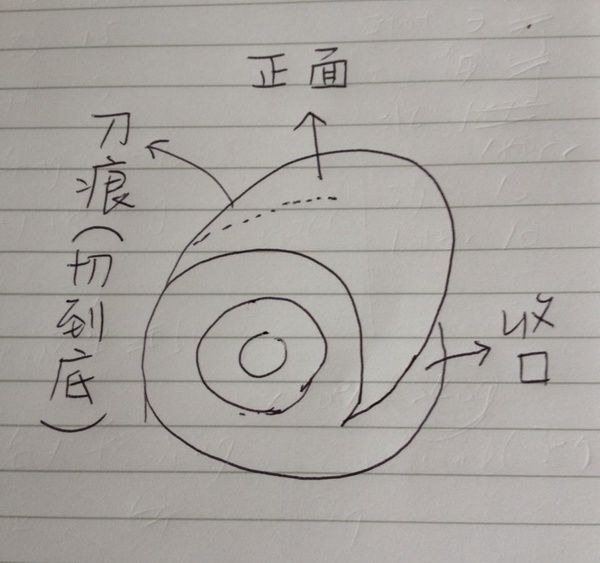 正面
刀痕(切到底)
收口